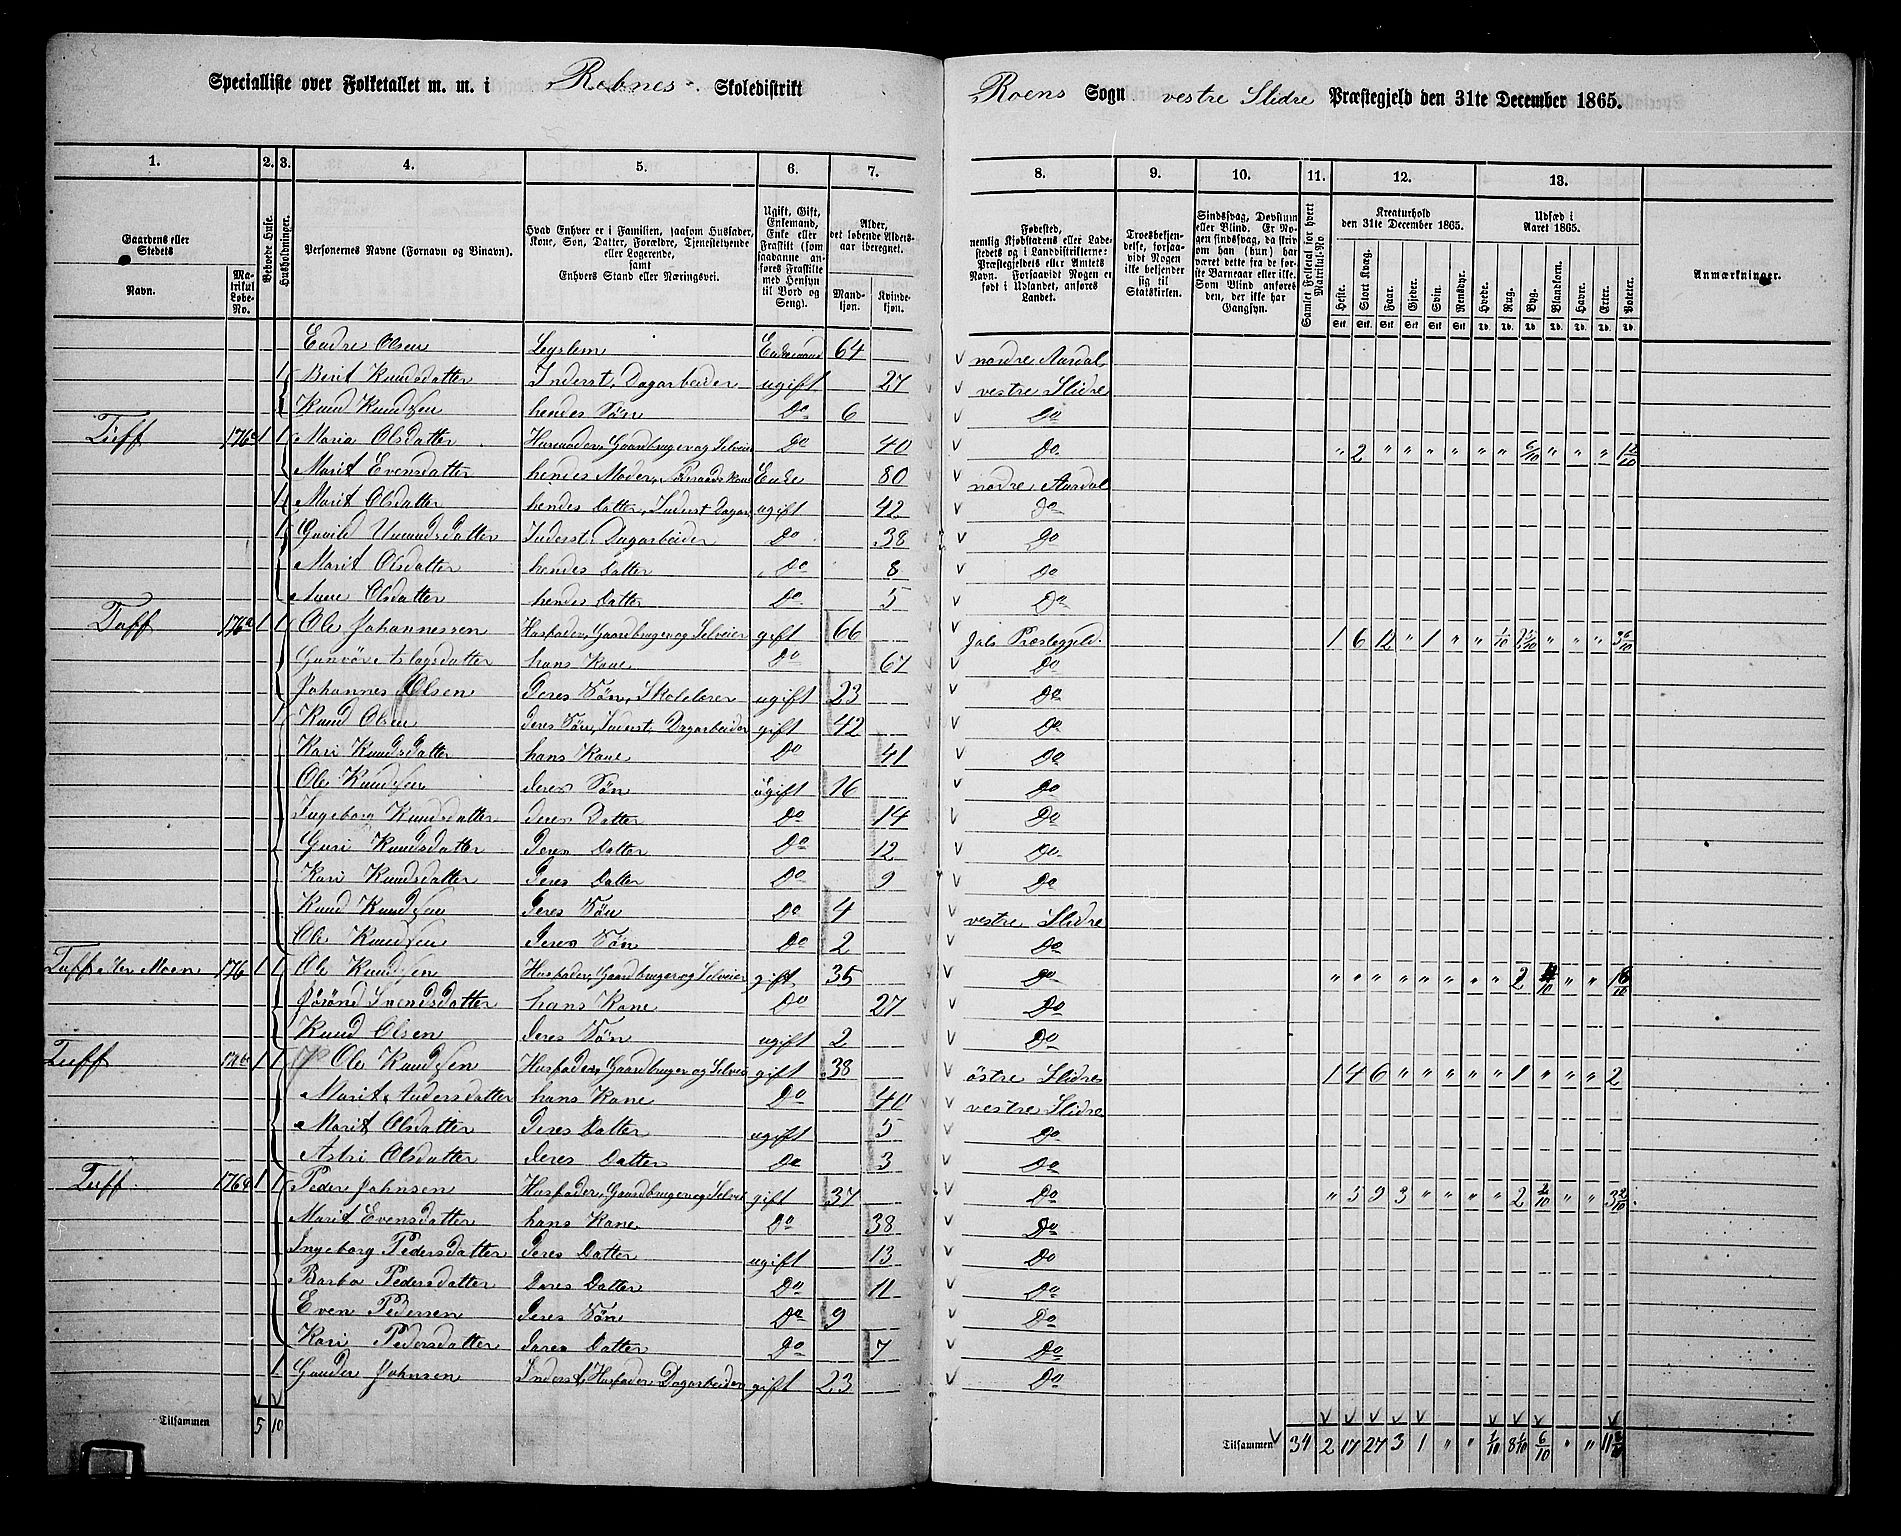 Specialliste over Folketallet m. m. i Robnes Skoledistrikt
Roens Sogn vestre Slidre Præstegjeld den 31te December 1865.
1. 2. 3. 4. 5. 6. 7. 8. 9. 10. 11. 12. 13.
Gaardens eller Stedets Navn. Matrikul Løbe-No.
Beboede Huse.
Husholdninger.
Personernes Navne (Fornavn og Tilnavn).
Hvad Enhver er i Familien, saasom Husfader, Kone, Søn, Datter, Forældre, Tjenestetyende eller Logerende, samt Enhvers Stand eller Næringsvei.
Ugift, Gift, Enkemand, Enke eller Fraskilt (som saadanne anføres Fraskilte med Hensyn til Bord og Seng).
Alder, det løbende Aldersaar iberegnet. Mandkjøn. Kvindekjøn.
Fødested, nemlig Kjøbstadens eller Ladestedets og i Landdistrikterne: Præstegjeldets eller Amtets Navn. Forsaavidt Nogen er født i Udlandet, anføres Landet.
Troesbekjendelse, forsaavidt Nogen ikke bekjender sig til Statskirken.
Sindssvag, Døvstum eller Blind. Er Nogen sindssvag, da skrives om han (hun) har været dette fra de første Barneaar eller ikke. Som Blind anføres den, der ikke har Gangsyn.
Samlet Folketal for hvert Matrikul-No.
Kreaturhold den 31te December 1865.
Heste. Stort Kvæg. Faar. Gjeder. Svin. Rensdyr.
Udsæd i Aaret 1865.
Hvede. Rug. Byg. Blandkorn. Havre. Erter. Poteter.
Anmærkninger.
Endre Olsen Legslem Enkemand 64 nordre Aardal
1 Berit Knudsdatter Inderst, Dagarbeider ugift 27 vestre Slidre
Knud Knudsen hendes Søn Do 6 Do
Tuff 176 1 1 Maria Olsdatter Husmoder, Gaardbruger og Selveier Do 40 Do " 2 " " " " " " 6/10 " " "
Marit Evensdatter hendes Moder, Enke 80 nordre Aardal
1 Marit Olsdatter hendes Datter, Inderst Dagar. ugift 42 Do
1 Gunild Amundsdatter Inderst, Dagarbeider Do 38 Do
Marit Olsdatter hendes Datter Do 8 Do
Anne Olsdatter hendes Datter Do 5 Do
Tuff 176a 1 1 Ole Johannessen Husfader, Gaardbruger og Selveier gift 66 Jols Præstegjeld. 1 6 12 " 1 " " 1/10 " " "
Gunvor Aslagsdatter hans Kone Do 67 Do
Johannes Olsen Deres Søn, Skolelærer ugift 23 Do
1 Knud Olsen deres Søn, Inderst, Dagarbeider gift 42 Do
Kari Knudsdatter hans Kone Do 41 Do
Ole Knudsen deres Søn ugift 16 Do
Ingeborg Knudsdatter deres Datter Do 14 Do
Guri Knudsdatter Deres Datter Do 12 Do
Kari Knudsdatter Deres Datter Do 9 Do
Knud Knudsen Deres Søn Do 4 vestre Slidre
Ole Knudsen Deres Søn Do 2 Do
Tuff Moen 176 1 1 Ole Knudsen Husfader, Gaardbruger og Selveier gift 35 Do " " " " " " " " 2 " "
Jørønd Svendsdatter hans Kone Do 27 Do
Knud Olsen deres Søn ugift 2 Do
Tuff 176 1 1 Ole Knudsen Husfader, Gaardbruger og Selveier gift 38 østre Slidre 1 4 6 " " " " " 1 " " " 2
Marit Andersdatter hans Kone Do 40 vestre Slidre
Marit Olsdatter Deres Datter ugift 5 Do
Astri Olsdatter deres Datter Do 3 Do
Tuff 176 1 1 Peder Johnsen Husfader, Gaardbruger og Selveier gift 37 Do " 5 9 3 " " " " 2 2/10 " " 3 2/10
Marit Evensdatter hans Kone Do 38 Do
Ingeborg Pedersdatter Deres Datter ugift 13 Do
Barbo Pedersdatter Deres Datter Do 11 Do
Even Pedersen Deres Søn Do 9 Do
Kari Pedersdatter Deres Datter Do 7 Do
1 Gunder Johnsen Inderst, Husfader, Dagarbeider gift 23 Do
Tilsammen 5 10
Tilsammen 34 2 17 27 3 1 " " 1/10 8 1/10 6/10 " "